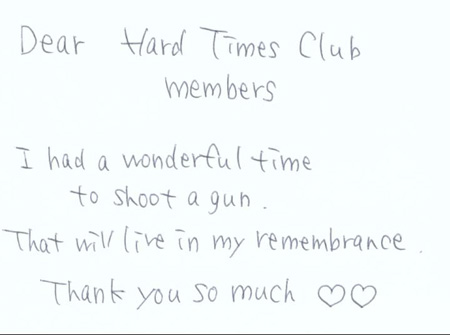 Dear Hard Times Club
members
I had a wonderful time
to shoot a gun.
That will live in my remembrance.
Thank you so much ♡♡